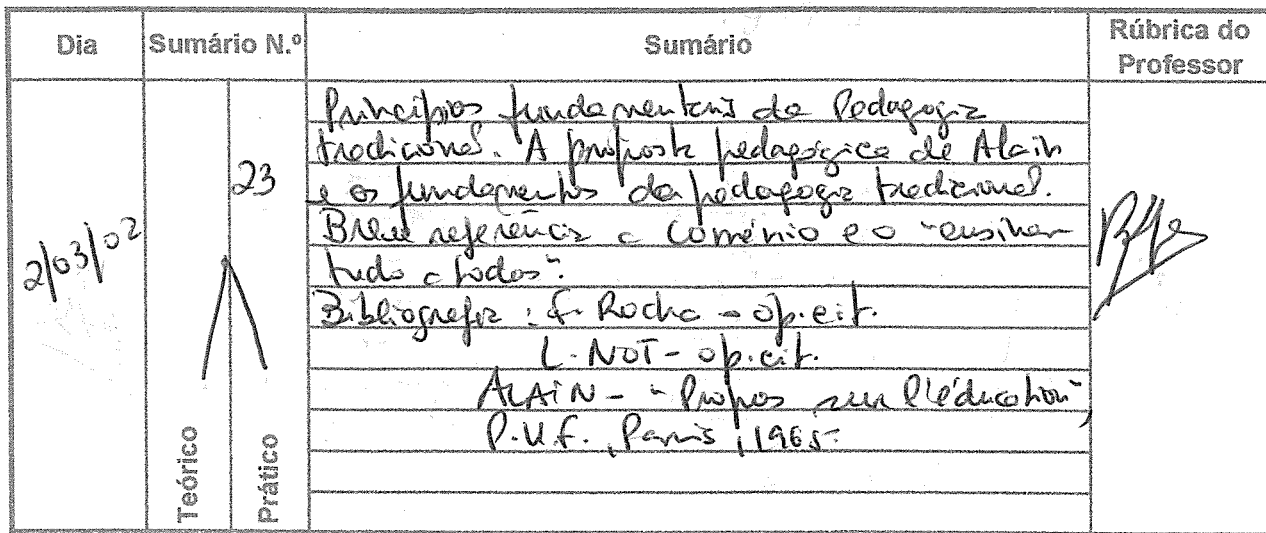 Dia
Sumário N.º
Sumário
Rúbrica do
Professor
2/03/02
23
Teórico
Prático
Princípios fundamentais da Pedagogia
tradicional. A proposta pedagógica de Alain
e os fundamentos da pedagogia tradicional.
Breve referência a Coménio e o "ensinar
tudo a todos".
Bibliografia: F. Rocha - op. cit.
L. NOT - op. cit.
ALAIN - "Propos sur l'éducation",
P.U.F., Paris, 1965.